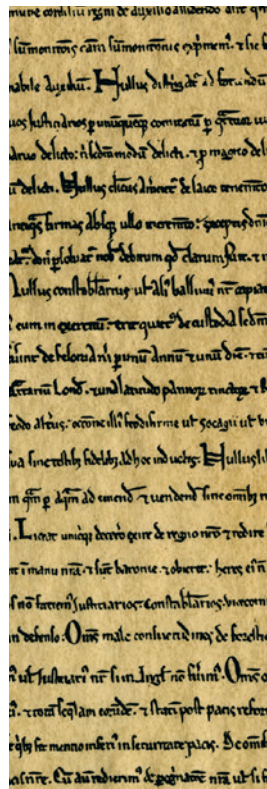 mune consiliū regni de auxilio assidendo alit̄ q̄
sūmonitōnis cām sūmonitōnis exp̄mem᷒. ⁊ sic f
nabile Auxiliū. Nullus distring̃at̄ ad faciendū
uos Justiciarios p unūquēq comitatū p q̃tuor vi
paruo delicto, nˢ sc̄dm modū delicti. ⁊ p magno del
ū delicti. Nullus cl̄icus am̄ciet̄ de laico tenemento
antiq̃s firmas absq ullo incremento: exceptis dn̄i
don psoluat̄ nob debitum qd clarum fuit. ⁊ r
Nullus constabl̄arius ul̄ aliˢ balliuˢ nr̄ capiat
eum in exercitū. erit quietˢ de custodia sc̄dm
fuint de felonia nˢ p unū annū ⁊ unū diē. ⁊ tū
q̃rtariū Lond. ⁊ una latitudo pannoꝝ tinctoꝝ ⁊ R
feodo altius. occōne illiˢ feodifirme ul̄ socagii ul̄ b
sua sine testibȝ fidelibȝ ad hoc inductis. Nullus li
q̃m p aq̃m ad emend ⁊ vendend sine omibȝ m
Liceat unicuiq decetō exire de regno nr̄o ⁊ redire
nt ī manu nr̄a ⁊ sūt baronie. ⁊ obierit. heres eiˢ n
s nō faciemˢ Justiciarios. Constabl̄arios. vicecom
in defenso. Om̄s male consuetudines de forestis
ul̄ Justiciariˢ nr̄ si in Angl̄ nō fuimˢ. Om̄s o
⁊ totam seq̄lam eordē. ⁊ statī post pacis reform
e qibȝ fit mentio inferiˢ in securitate pacis. De com
as nr̄e. Cū aū redierimˢ de pegnatōne nr̄a ul̄ si f